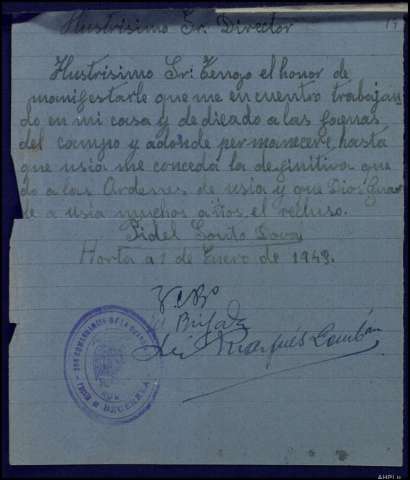 Ilustrisimo Sr. Director
Ilustrisimo Sr: Tengo el honor de
manifestarle que me encuentro trabajan
do en mi casa y dedicado a las faenas
del campo y adonde permanecere, hasta
que usia me conceda la definitiva que
do a las Ordenes de usia y que Dios guar
de a usia muchos años, el recluso.
Fidel
Horta a 1 de Enero de 1943.
Vº Bº
Brigada
BECERREA
AHPLu